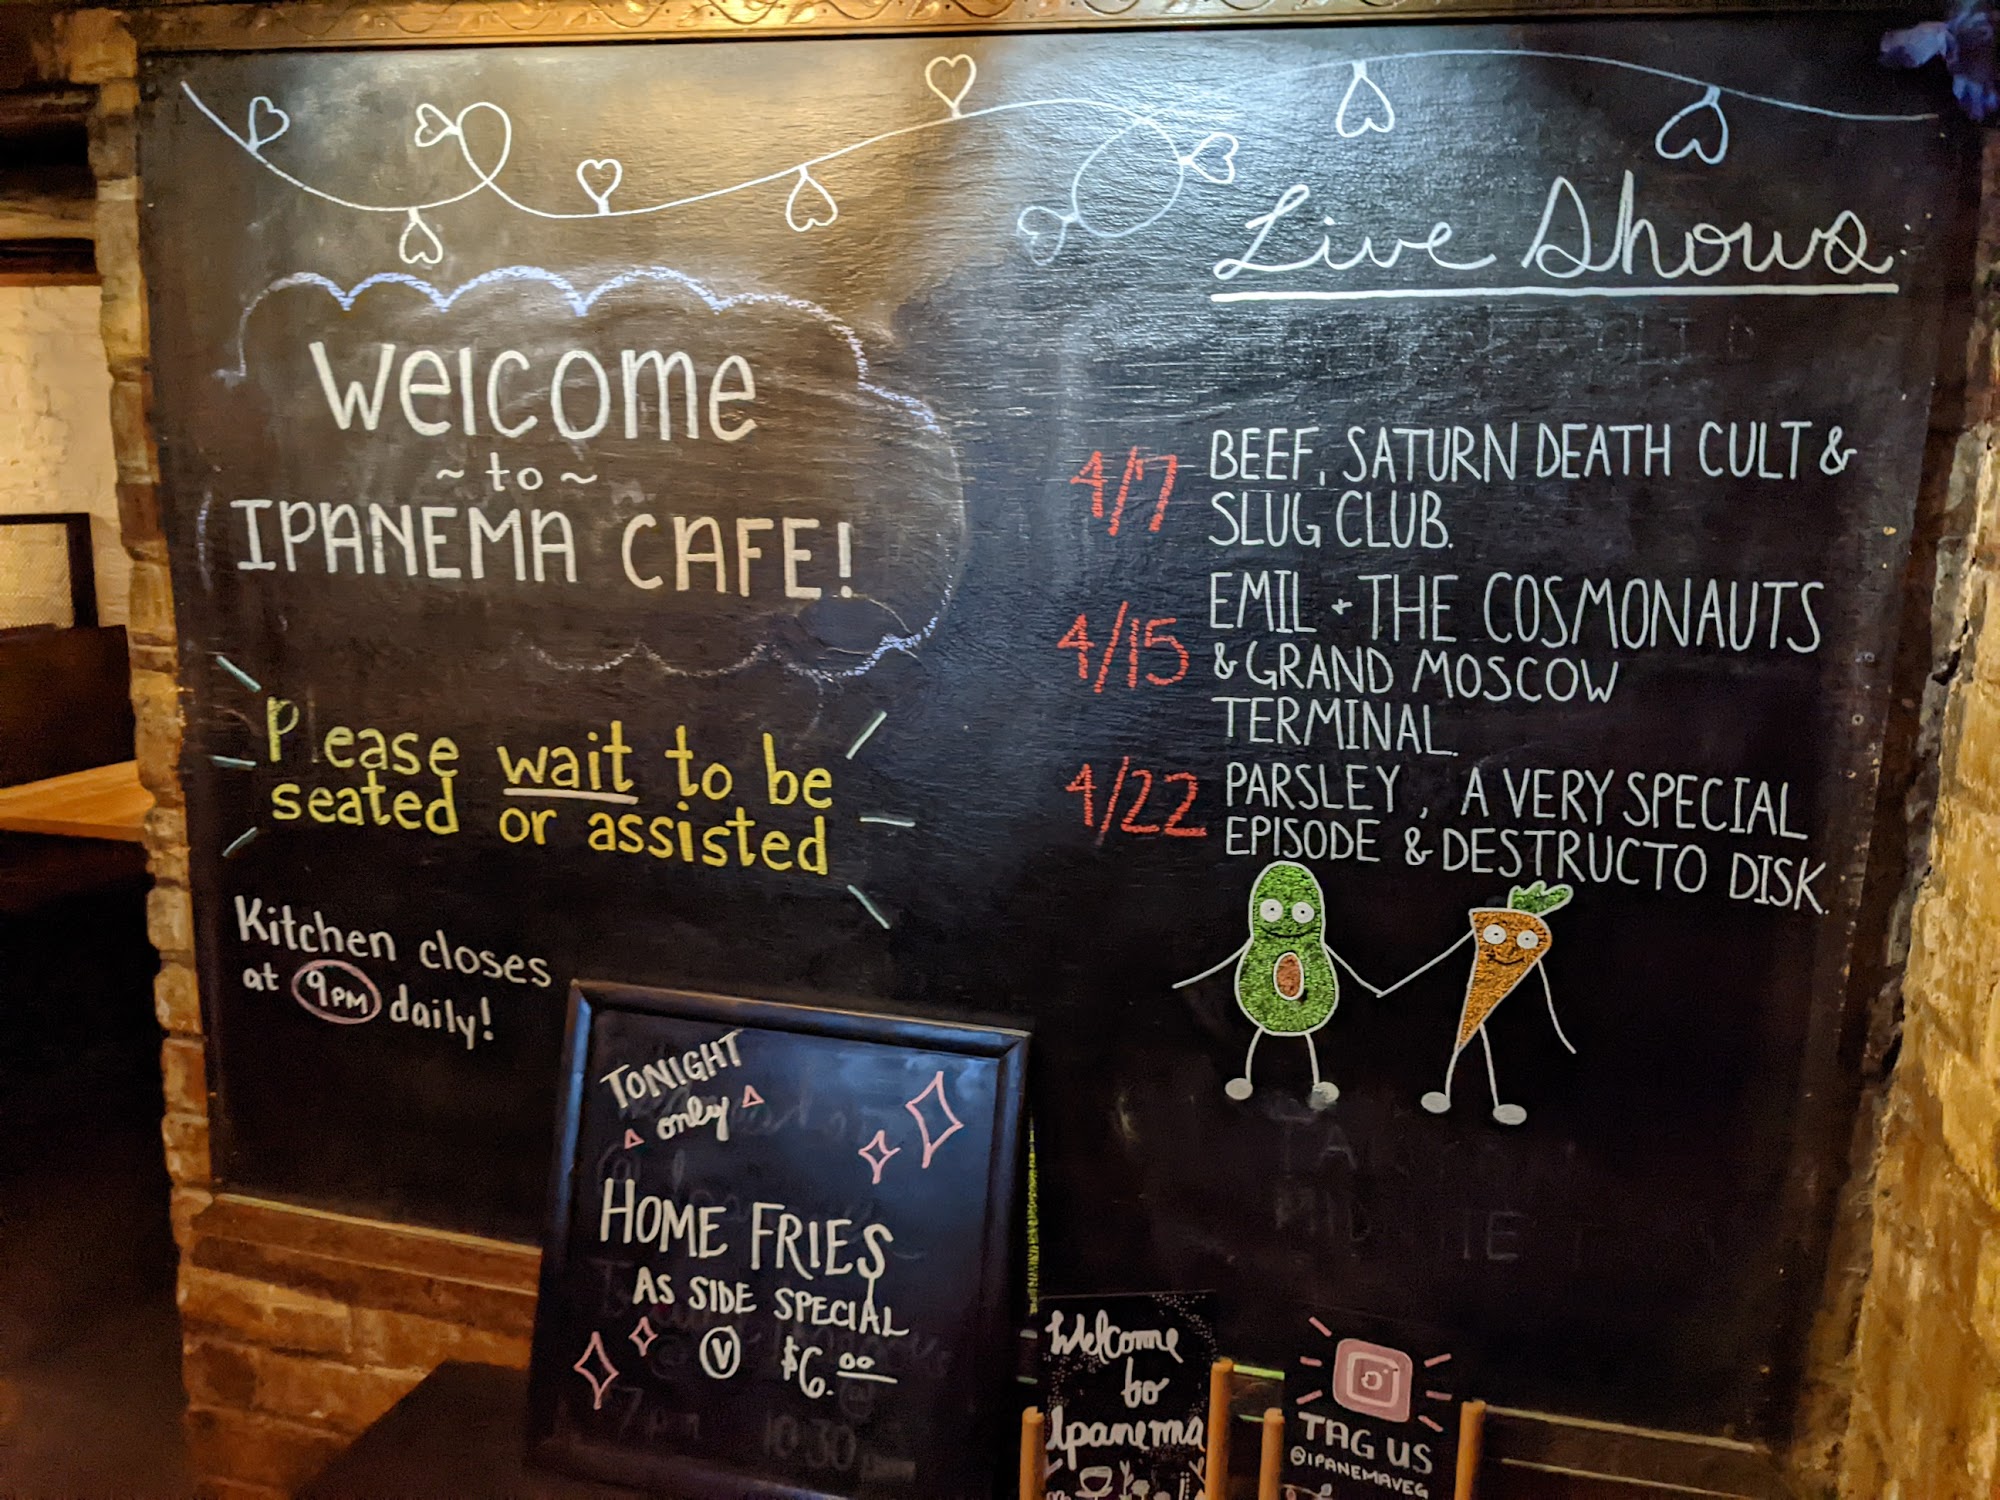 Welcome
~ to ~
IPANEMA CAFE!
Please wait to be
seated or assisted
Kitchen closes
at 9PM daily!
Live Shows:
4/7 BEEF, SATURN DEATH CULT &
SLUG CLUB.
4/15 EMIL + THE COSMONAUTS
& GRAND MOSCOW
TERMINAL.
4/22 PARSLEY, A VERY SPECIAL
EPISODE & DESTRUCTO DISK.
TONIGHT
only
HOME FRIES
AS SIDE SPECIAL
V $6.00
7pm 10:30pm
Welcome
to
Ipanema
TAG US
@IPANEMAVEG